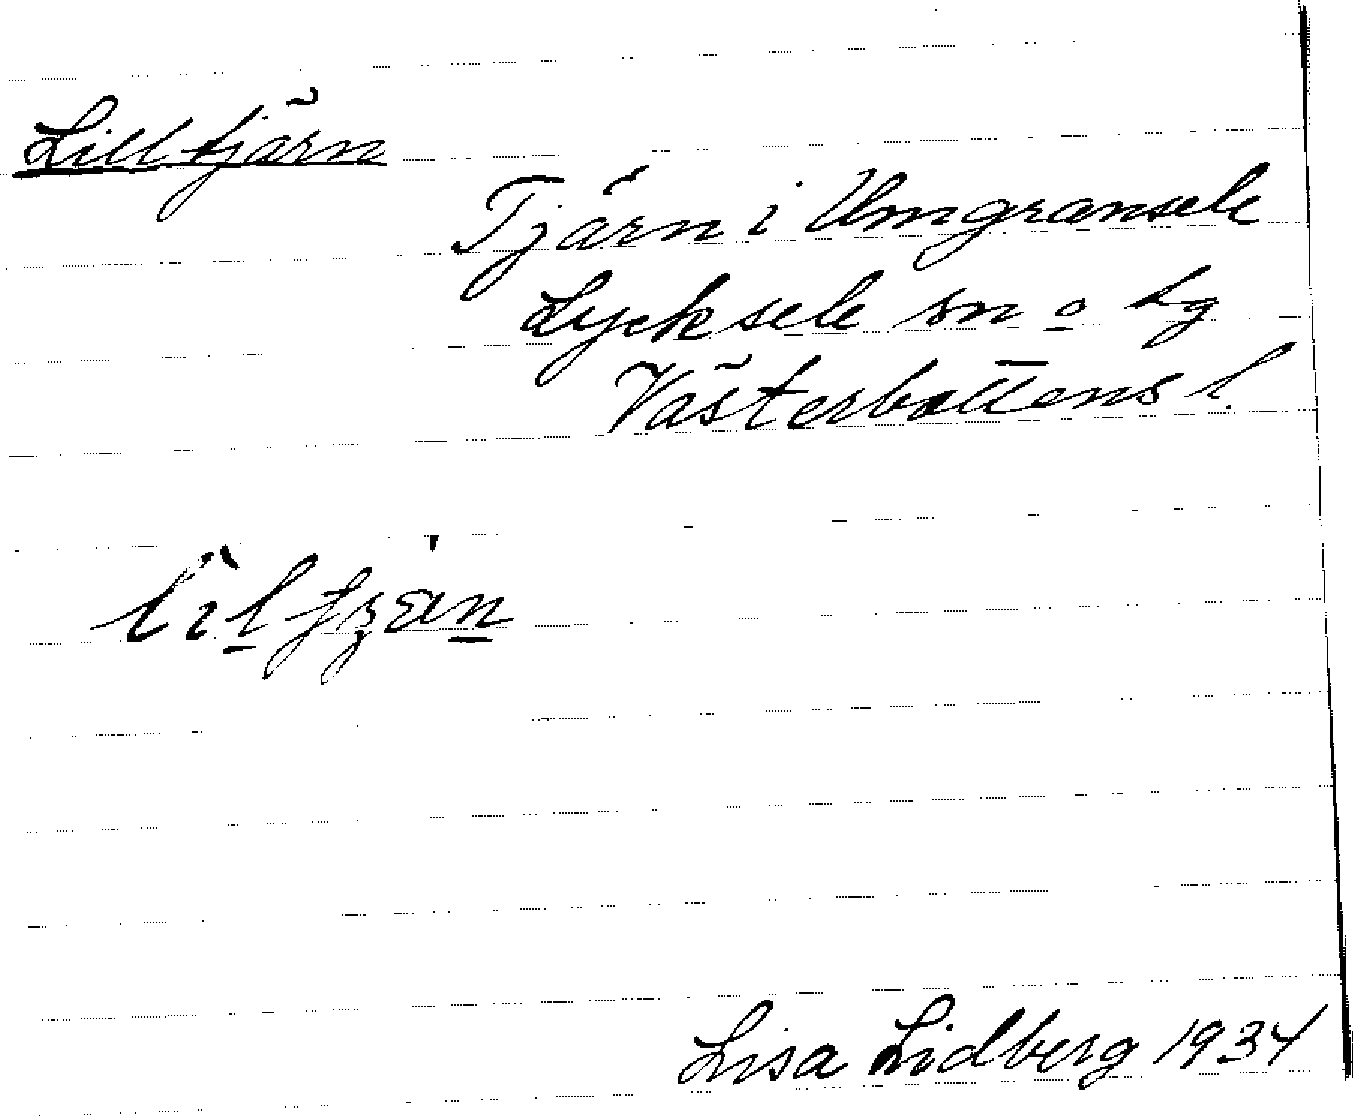 Lilltjärn
Tjärn i Umgransele
Lycksele sn o lg
Västerbottens l.
Lisa Lidberg 1934